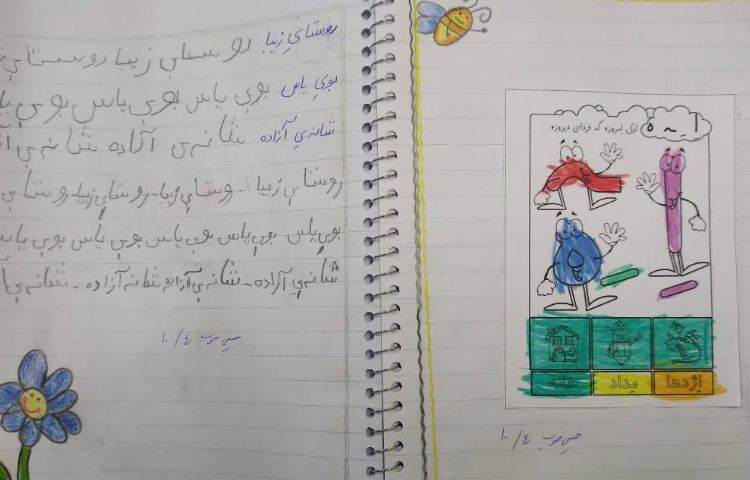 روستایِ زیبا روستایِ زیبا روستایِ
بویِ یاس بویِ یاس بویِ یاس بویِ
شانه‌یِ آزاده شانه‌ی آزاده شانه‌یِ
روستایِ زیبا - روستایِ زیبا - روستایِ زیبا - روستایِ
بویِ یاس بویِ یاس بویِ یاس بویِ یاس بویِ
شانه‌یِ آزاده - شانه‌یِ آزاده شانه آزاده - شانه‌یِ
خیلی خوب ۱۰/٤
اَ ـَـ ه
اول امروزه که فردای دیروزه
خانه مِداد اَژدها
خیلی خوب ۱۰/٤